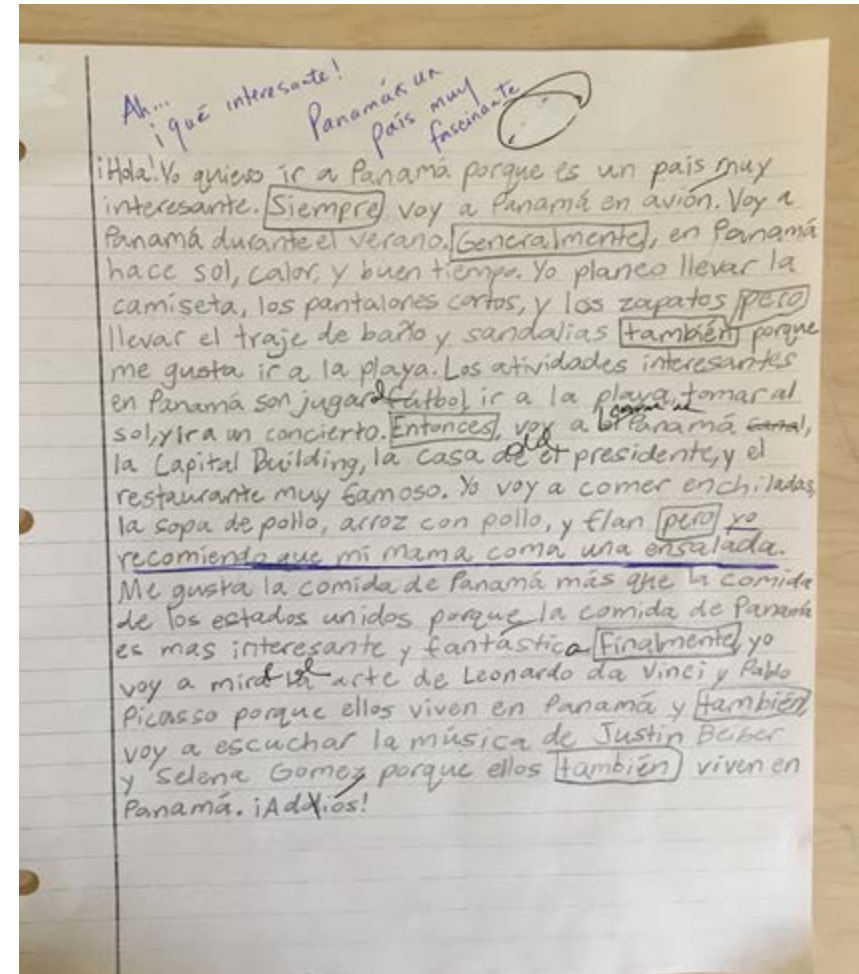 Ah...
¡qué interesante!
Panamá es un
país muy
fascinante
¡Hola! Yo quiero ir a Panamá porque es un país muy
interesante. Siempre voy a Panamá en avión. Voy a
Panamá durante el verano. Generalmente, en Panamá
hace sol, calor, y buen tiempo. Yo planeo llevar la
camiseta, los pantalones cortos, y los zapatos pero
llevar el traje de baño y sandalias también porque
me gusta ir a la playa. Los atividades interesantes
en Panamá son jugar al fútbol ir a la playa, tomar al
sol, y ir a un concierto. Entonces, voy a Panamá canal,
la Capital Building, la casa del presidente, y el
restaurante muy famoso. Yo voy a comer enchiladas,
la sopa de pollo, arroz con pollo, y flan pero yo
recomiendo que mi mama coma una ensalada.
Me gusta la comida de Panamá más que la comida
de los estados unidos porque la comida de Panamá
es mas interesante y fantástica. Finalmente, yo
voy a mirar el arte de Leonardo da Vinci y Pablo
Picasso porque ellos viven en Panamá y también,
voy a escuchar la música de Justin Beiber
y Selena Gomez porque ellos también viven en
Panamá. ¡Adiós!